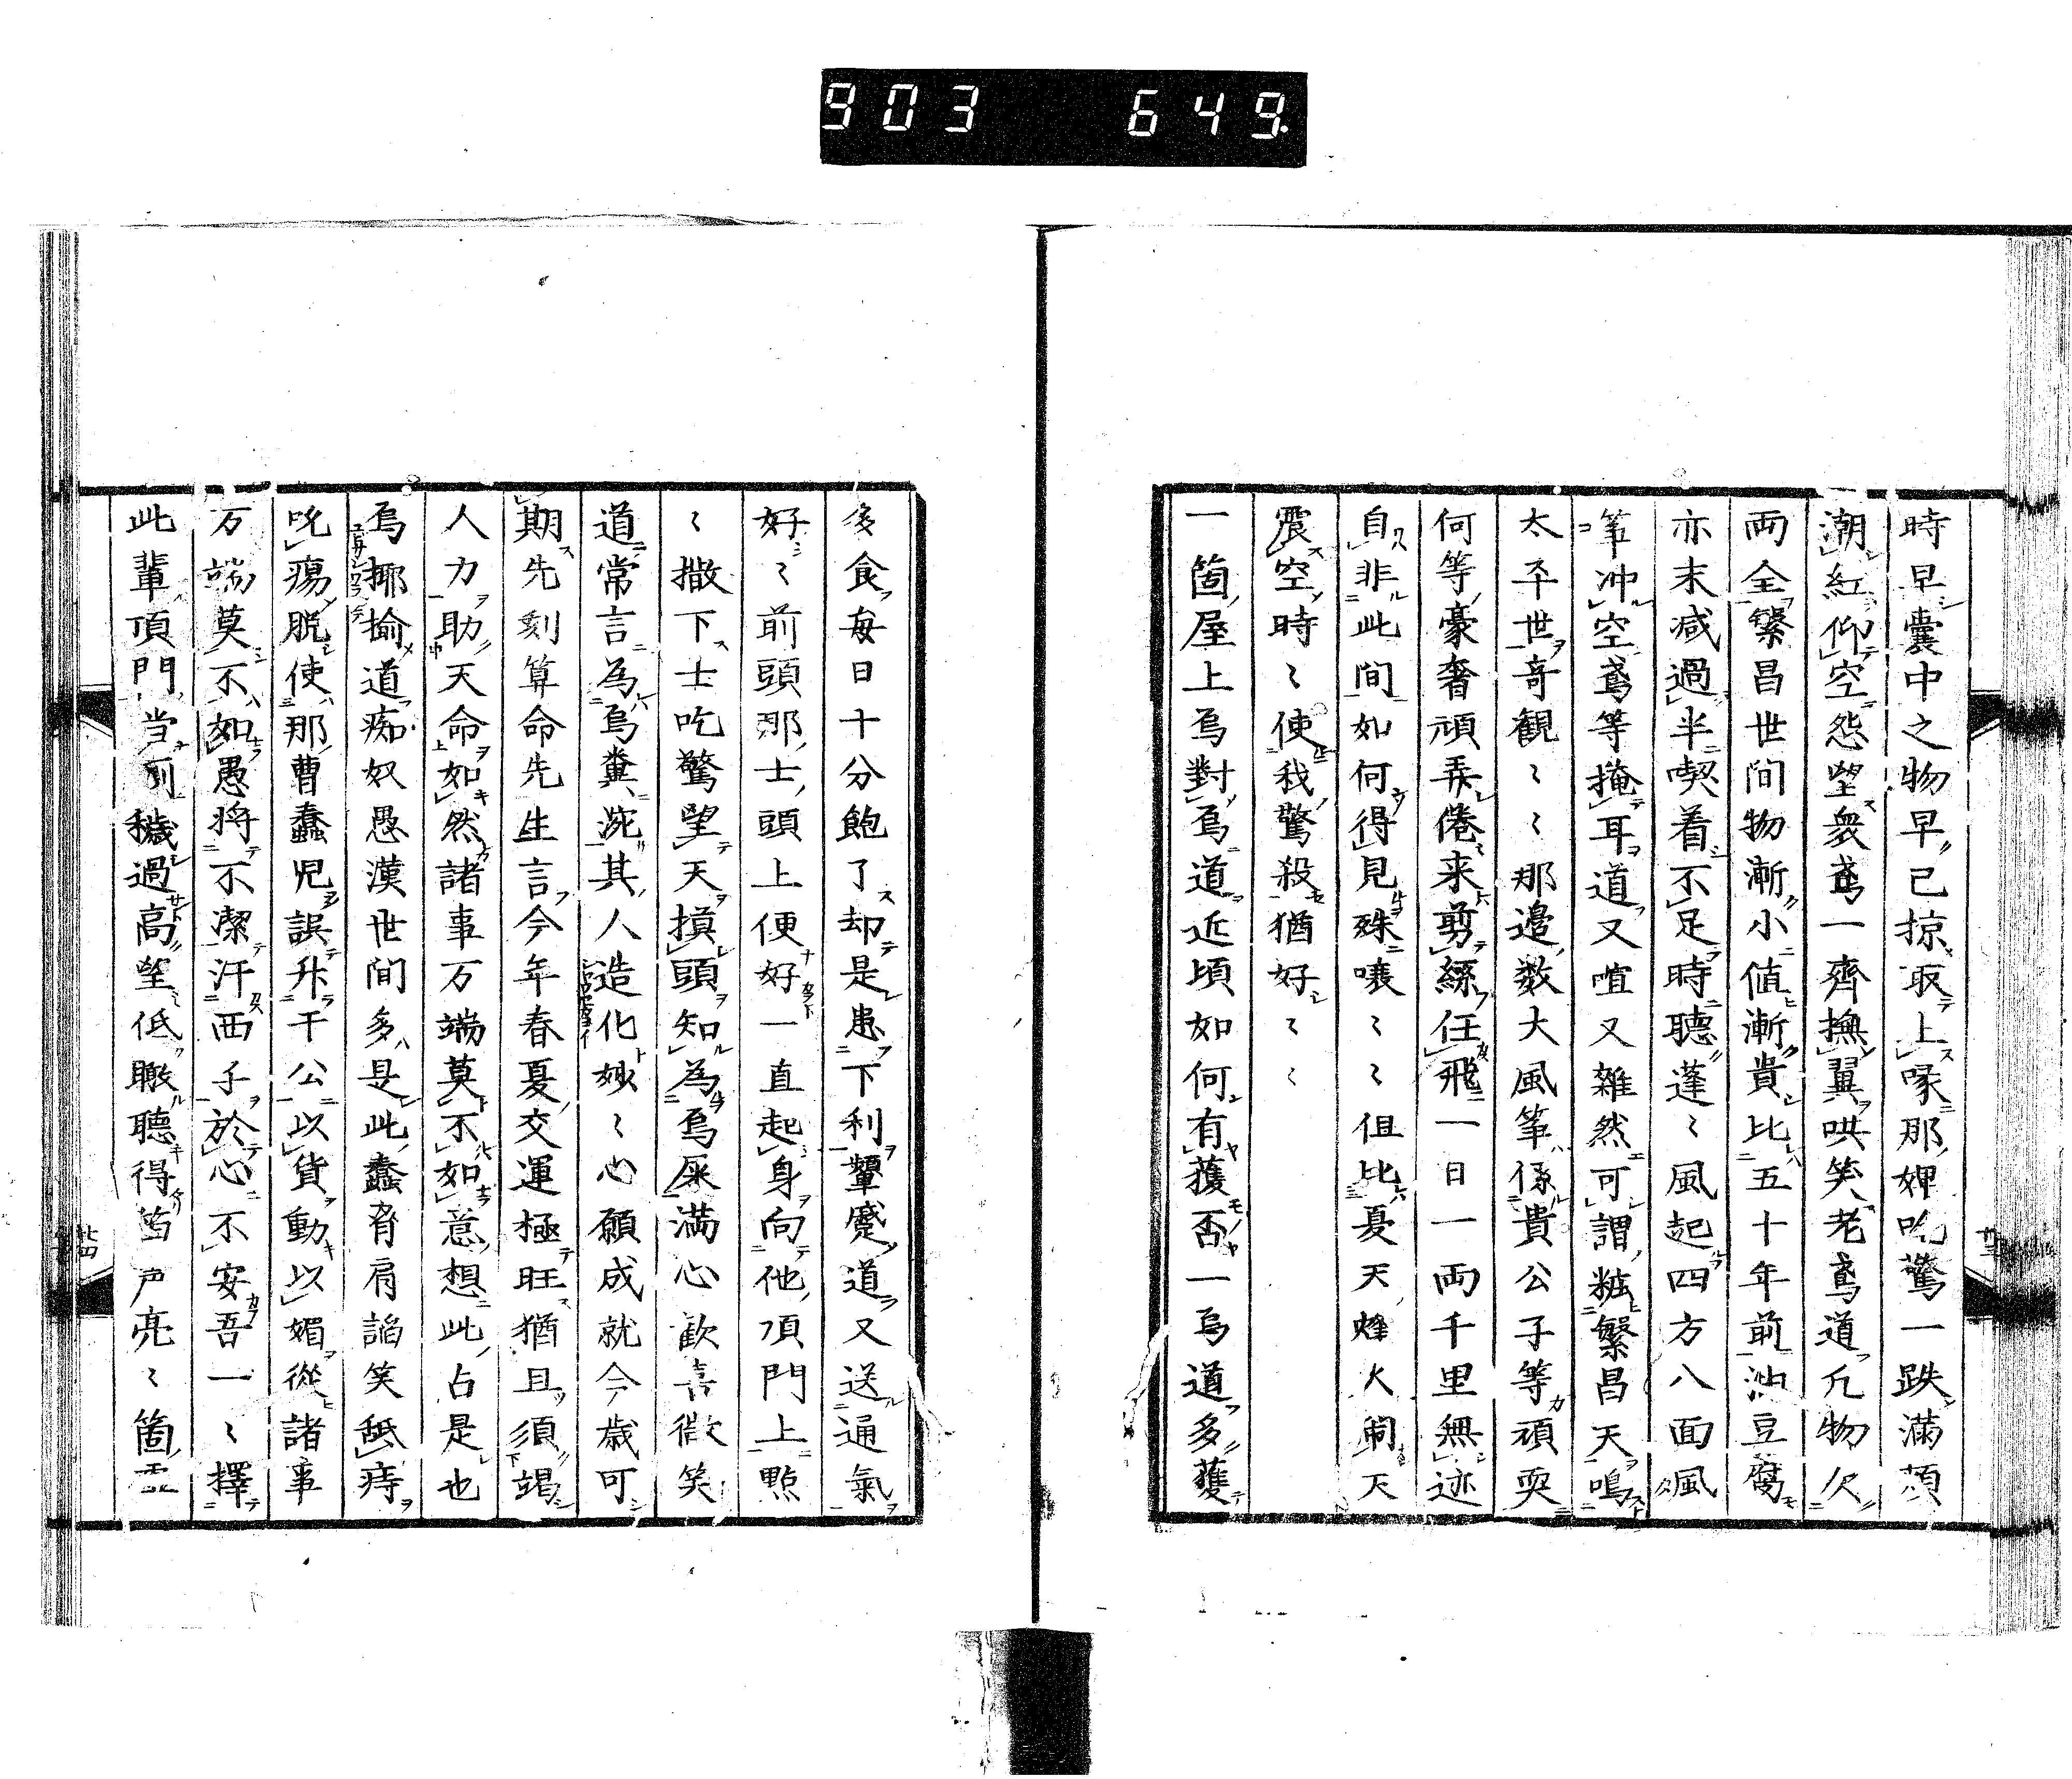 903 649
時早囊中之物早已掠取上喙那婢吃驚一跌滿顔
潮紅仰空怨望衆鳶一齊撫翼哄笑老鳶道凡物欠
両全繁昌世間物漸小値漸貴比五十年前油豆腐
亦末减過半喫着不足時聽蓬〻風起四方八面風
筝冲空鳶等掩耳道又喧又雜然可謂粧繁昌天鳴
太平世竒観〻〻那邊数大風筝係貴公子等頑耍
何等豪奢頑弄倦来剪綛任飛一日一両千里無迹
自非此間如何得見殊嚷〻〻但比夏天烽火閙天
震空時〻使我驚殺猶好〻〻
一箇屋上烏對烏道近頃如何有獲否一烏道多獲
多食毎日十分飽了却是患下利顰蹙道又送通氣
好〻前頭那士頭上便好一直起身向他頂門上㸃
〻撒下士吃驚望天損頭知為烏屎満心歓喜微笑
道常言為烏糞涴其人造化妙〻心願成就今歳可
期先刻算命先生言今年春夏交運極旺猶且須竭
人力助天命如然諸事万端莫不如意想此占是也
烏揶揄道痴奴愚漢世間多是此蠢脅肩諂笑舐痔
吮瘍脱使那曹蠢児誤升干公以貨動以媚従諸事
万端莫不如愚将不潔汗西子於心不安吾一〻擇
此輩頂門当列穢過高望低瞰聽得笛声亮〻箇
廿三
廿四